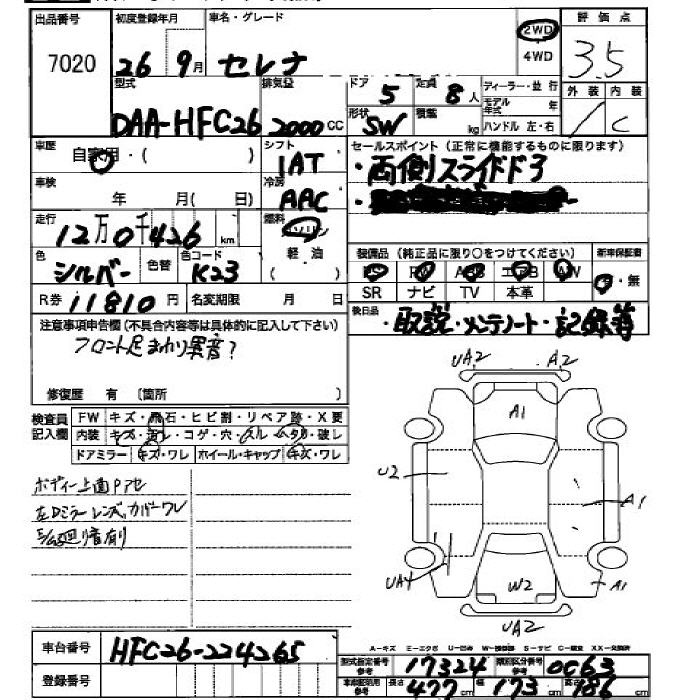 出品番号 初度登録年月 車名・グレード 2WD 評価点
7020 26 9月 セレナ 4WD 3.5
型式 排気量 ドア 5 定員 8人 ディーラー・並行 外装 内装
DAA-HFC26 2000cc 形状 SW 積載 kg モデル年式 年 C
ハンドル 左・右
車歴 自家用・( ) シフト 1AT セールスポイント(正常に機能するものに限ります)
・両側スライドドア
車検 年 月( 日) 冷房 AAC
走行 12万0千426km 燃料 ガソリン
軽油
( )
色 シルバー 色替 色コード K23
装備品(純正品に限り○をつけてください) 新車保証書
PS PW ABS エアB AW 有・無
SR ナビ TV 本革
R券 11810円 名変期限 月 日
後日品 ・取説・メンテノート・記録等
注意事項申告欄(不具合内容等は具体的に記入して下さい)
フロント足まわり異音?
修復歴 有 (箇所 )
検査員記入欄 FW キズ・飛石・ヒビ割・リペア跡・X要
内装 キズ・汚レ・コゲ・穴・スレ・ヘタリ・破レ
ドアミラー キズ・ワレ ホイール・キャップ キズ・ワレ
ボディー上面Pアセ
左Dミラーレンズ、カバーワレ
UA2 A2
A1
U2 A1
UA4 W2 A1
UA2
A-キズ E-エクボ U-凹み W-補修跡 S-サビ C-腐食 XX-交換済
車台番号 HFC26-224265
登録番号
型式指定番号 参考 17324 類別区分番号 参考 0C63
車両証明用 参考 長さ 477cm 幅 173cm 高さ 186cm